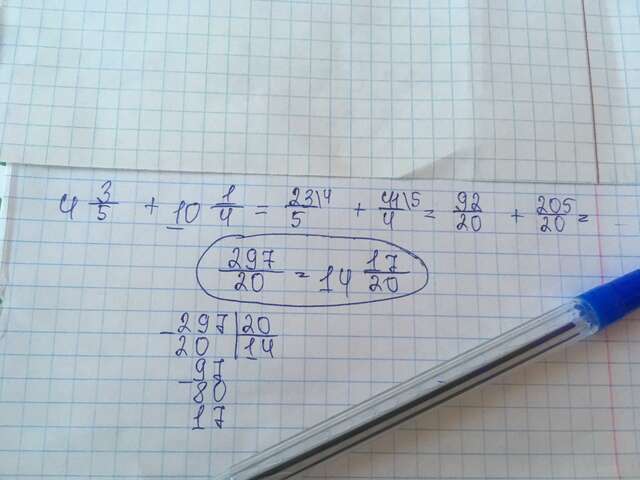 4 3/5 + 10 1/4 = 23\4/5 + 41\5/4 = 92/20 + 205/20 =
297/20 = 14 17/20
-297 | 20
20 | 14
-97
80
17